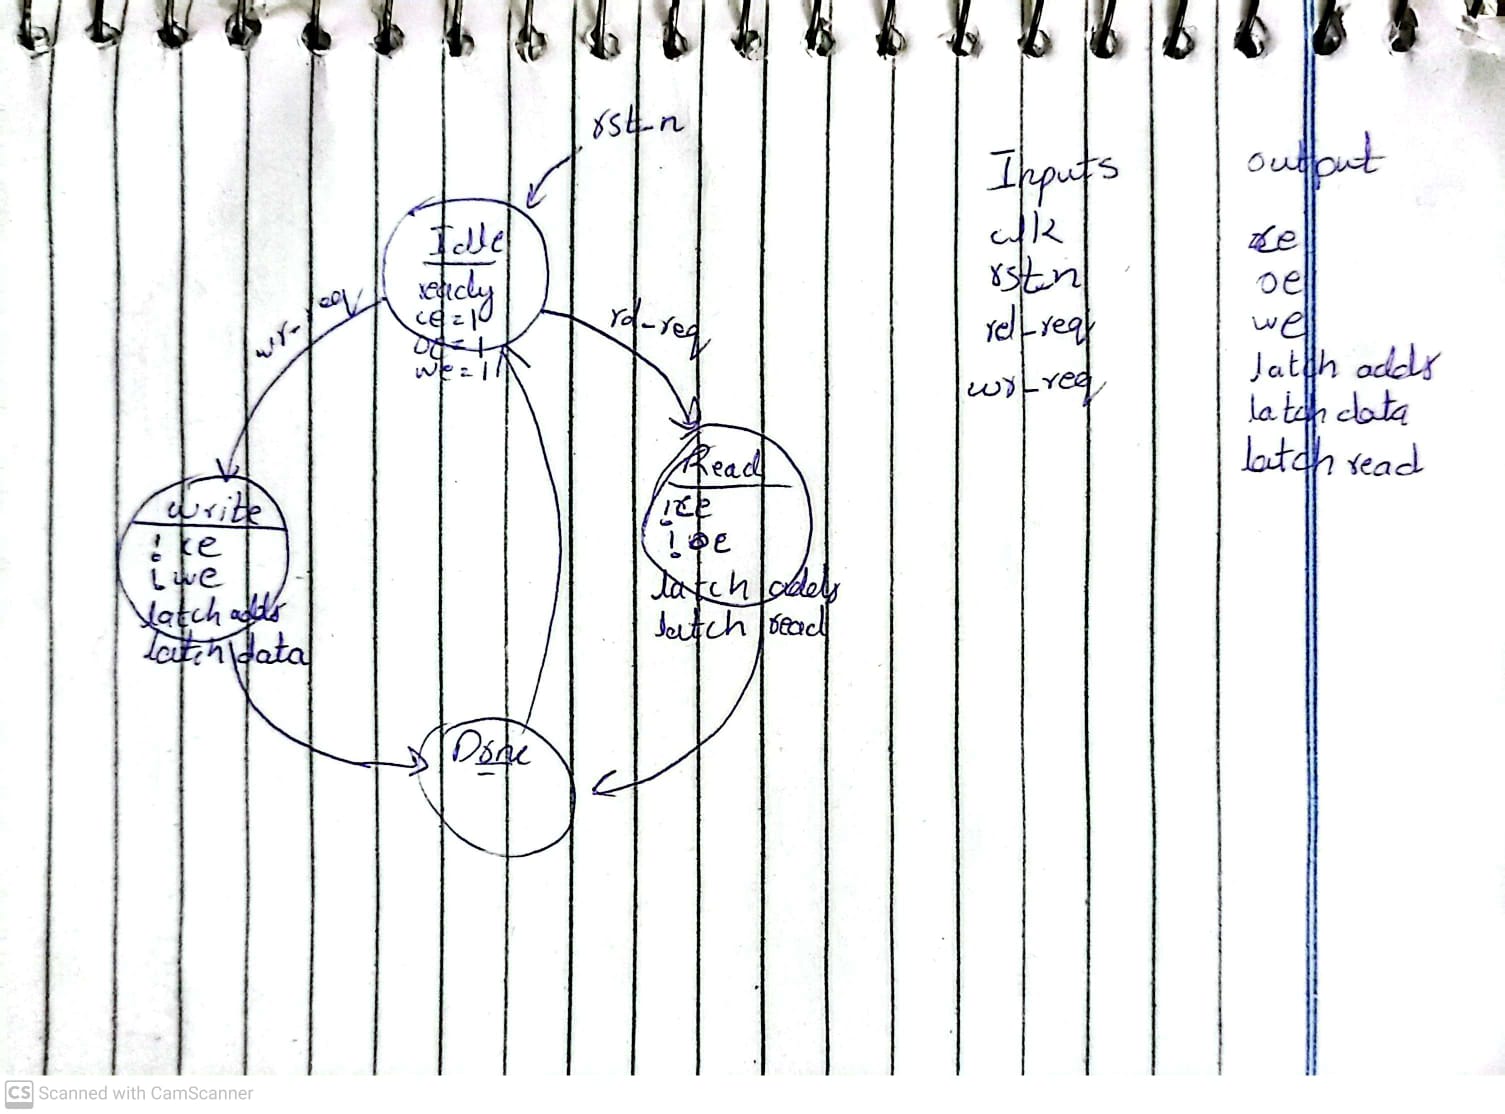 rst_n
Idle
ready
ce = 1
oe = 1
we = 1
wr_req
rd_req
write
! ce
! we
latch addr
latch data
Read
! ce
! oe
latch addr
latch read
Done
Inputs
clk
rst_n
rd_req
wr_req
output
ce
oe
we
latch addr
latch data
latch read
CS Scanned with CamScanner